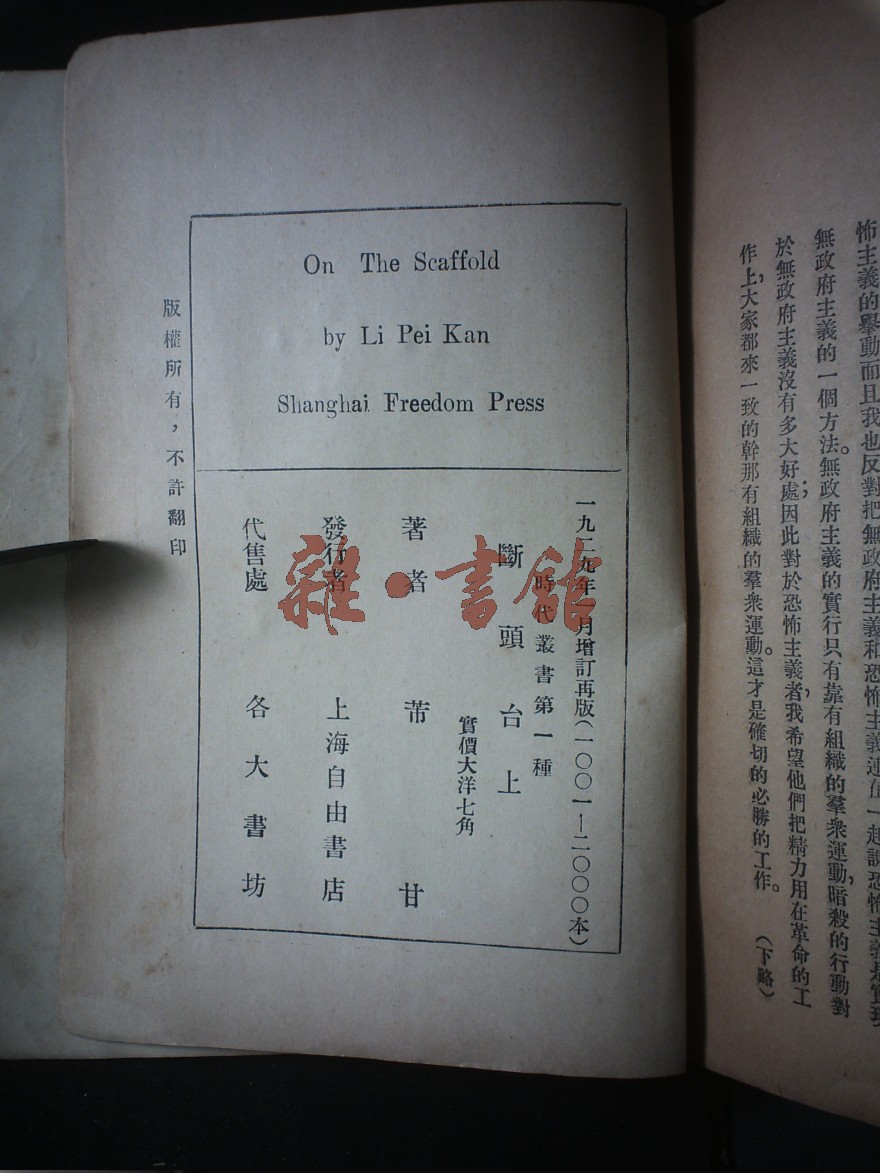 怖主義的舉動而且我也反對把無政府主義和恐怖主義連在一起說恐怖主義是實現
無政府主義的一個方法。無政府主義的實行只有靠有組織的羣衆運動,暗殺的行動對
於無政府主義沒有多大好處;因此對於恐怖主義者,我希望他們把精力用在革命的工
作上,大家都來一致的幹那有組織的羣衆運動。這才是確切的必勝的工作。 (下略)
On The Scaffold
by Li Pei Kan
Shanghai Freedom Press
一九二九年一月增訂再版(一〇〇一—二〇〇〇本)
時代叢書第一種
斷頭台上
實價大洋七角
著者 芾甘
發行者 上海自由書店
代售處 各大書坊
版權所有,不許翻印
雜·書館